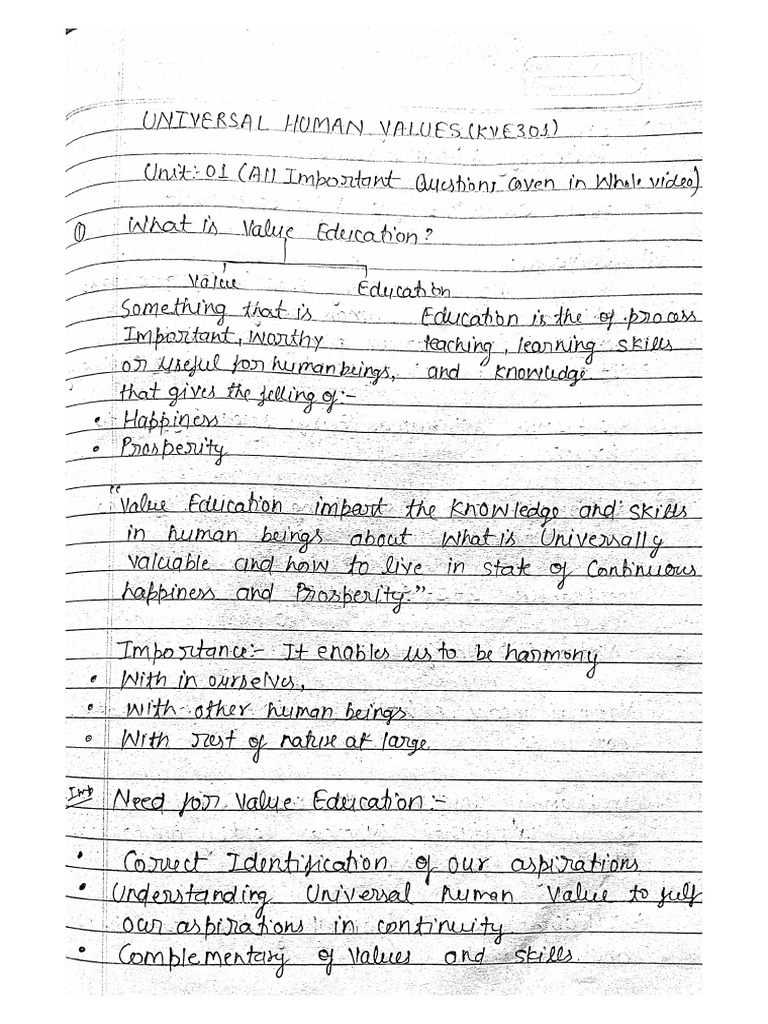 UNIVERSAL HUMAN VALUES (KVE301)
Unit:01 (All Important Questions coven in Whole video)
① What is Value Education?
Value Education
Something that is Education is the of process
Important, Worthy teaching, learning skills
or useful for human beings, and knowledge
that gives the felling of:-
• Happiness
• Prosperity
"Value Education impart the knowledge and skills
in human beings about what is Universally
valuable and how to live in state of Continuous
happiness and Prosperity."
Importance:- It enables us to be harmony
• With in ourselves,
• With other human beings
• With rest of nature at large.
Imp Need for Value Education:-
• Correct Identification of our aspirations
• Understanding Universal human Value to fulf
our aspirations in continuity
• Complementary of Values and skills.